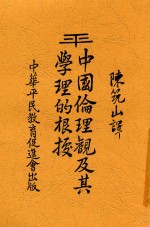 平
陳筑山譯
中國倫理觀及其
學理的根據
中華平民教育促進會出版